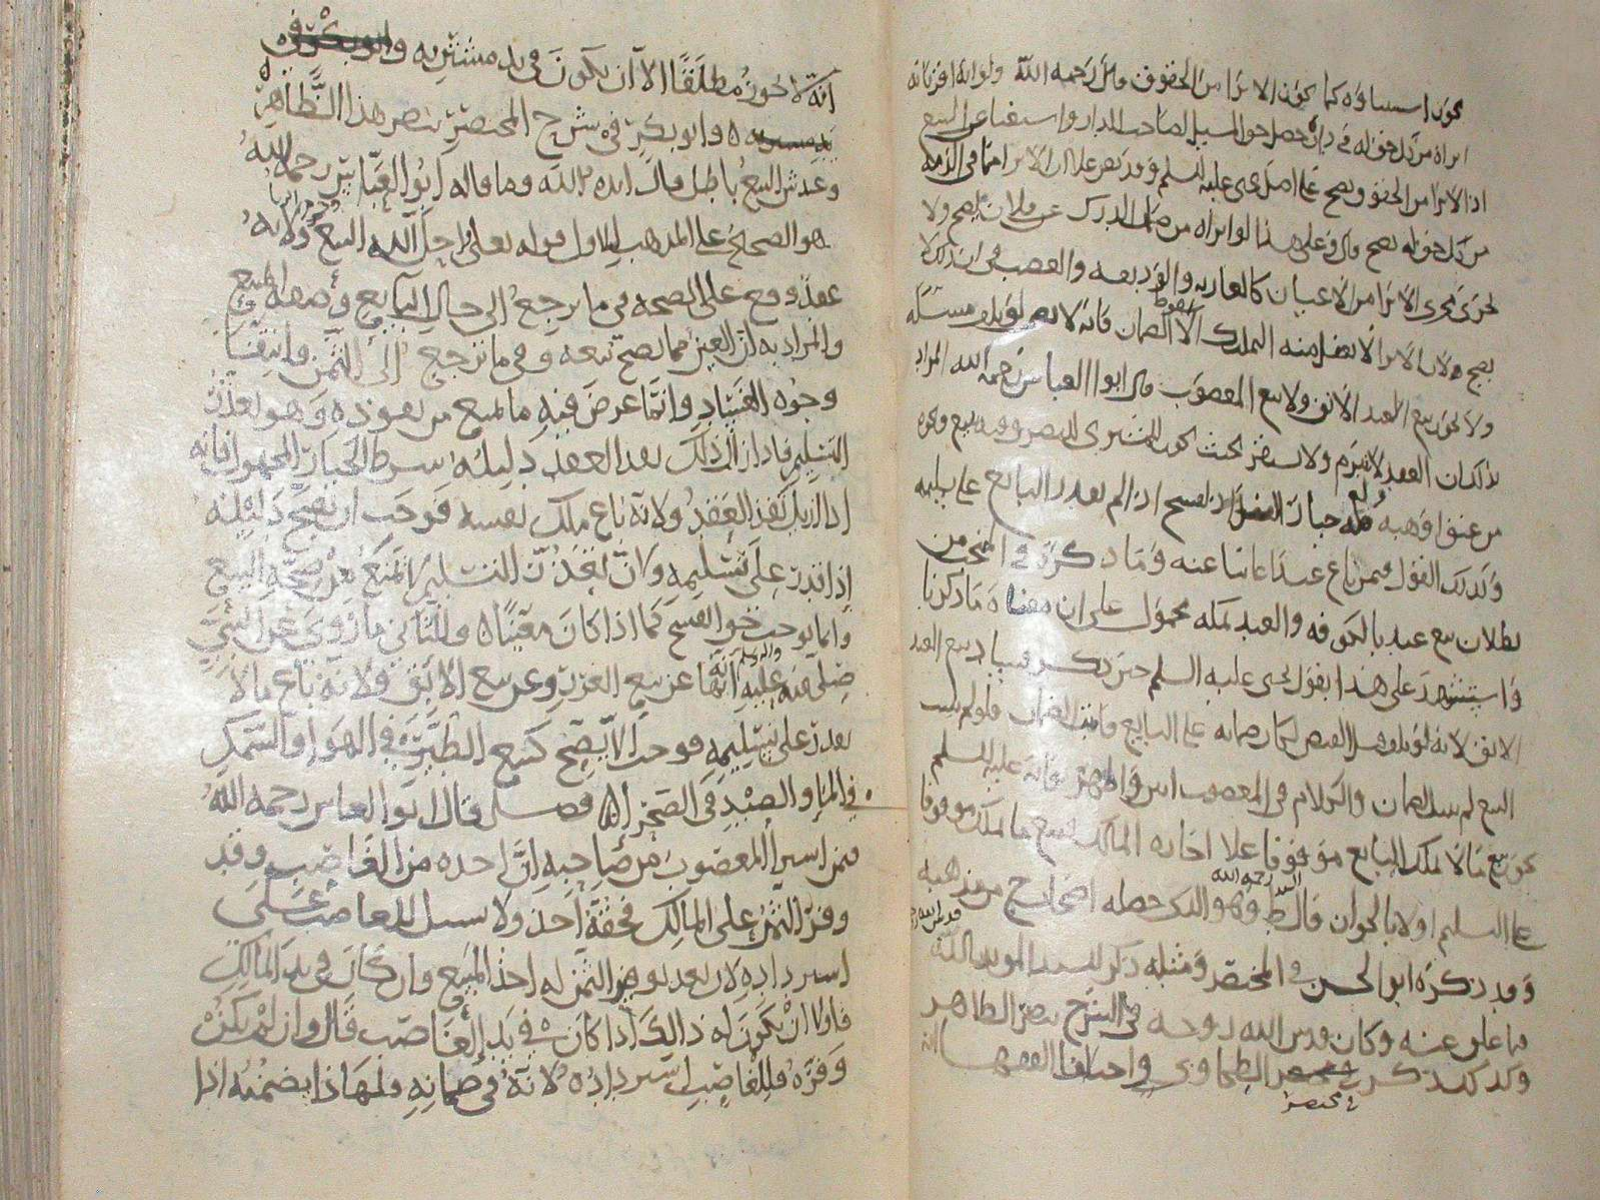 يجوز استثناؤه كما يجوز الابرا من الحقوق قال رحمه الله ولو انه اقر بانه
ابراه من كل حق له في دار حصل حق المسيل لصاحب الدار واستغنا عن البيع
اذ الابرا من الحقوق يصح على اصل يحيى عليه السلم وقد نص على ان الابرا مما في الذمة
من كل حق له يصح قال وعلى هذا لو ابراه من ضمان الدرك عن فلان يصح ولا
يجري مجرى الابرا من الاعيان كالعارية والوديعة والغصب في ان ذلك لا
يصح ولان الابرا لا يحصل منه التملك الا سقوط الضمان فانه لا يصح مسئلة
ولا يجوز بيع العبد الابق ولا بيع المغصوب قال ابو العباس رحمه الله المراد
بذلك ان العقد لا ينبرم ولا يستقر بحيث يجوز للمشتري التصرف فيه ببيع ونحوه
من عتق او هبة وله خيار الفسخ اذا لم يقدر البايع على تسليمه
وكذلك القول فيمن باع عبدا غائبا عنه وما ذكره في المنتخب من
بطلان بيع عبد بالحق فه والعبد بمكة محمول على ان معناه ما ذكرنا
واستشهد على هذا بقول يحيى عليه السلم حين ذكر فساد بيع العبد
الابق لانه لو تلف قبل القبض لكان ضمانه على البايع فاثبت الضمان فلو لم يثبت
البيع لم يثبت الضمان والكلام في المغصوب ابين واظهر فانه عليه السلم
يجوز بيع ما لا يملك البايع موقوفا على اجازة المالك فبيع ما يملك موقوفا
على التسليم اولا بالجواز قال السيد ط رحمه الله وهو الذي حصله اصحابنا من مذهبه
وقد ذكره ابو الحسن في المختصر ومثله ذكر السيد المويد بالله قدس الله روحه
فيما علق عنه وكان قدس الله روحه في الشرح ينصر الظاهر
وكذلك ذكر في مختصر الطحاوي واختلف الفقها
انه لا يجوز مطلقا الا ان يكون في يد مشتريه
وابو بكر في شرح المختصر ينصر هذا الظاهر
وعند ش البيع باطل قال ايده الله وما قاله ابو العباس رحمه الله
هو الصحيح على المذهب للاول قوله تعالى واحل الله البيع ولانه
عقد وقع على الصحة في ما يرجع الى حال البايع وصفة المبيع
والمراد به ان العين مما يصح بيعه وفي ما يرجع الى الثمن وانتفت
وجوه الفساد وانما عرض فيه ما يمنع من نفوذه وهو تعذر
التسليم فاذا زال ذلك نفذ العقد دليله شرط الخيار المجهول فانه
اذا ازيل نفذ العقد ولانه باع ملك نفسه فوجب ان يصح دليله
اذا قدر على تسليمه وان تعذر التسليم لا يمنع من صحة البيع
وانما يوجب حق الفسخ كما اذا كان معيبا وللثاني ما روي عن النبي
صلى الله عليه واله وسلم انه نها عن بيع الغرر وعن بيع الابق ولانه باع ما لا
يقدر على تسليمه فوجب الا يصح كبيع الطير في الهوا والسمك
في الما والصيد في الصحرا فصل قال ابو العباس رحمه الله
فمن اشترا المغصوب من صاحبه ان اخذه من الغاصب وقد
وفر الثمن على المالك فحقه اخذ ولا سبيل للغاصب على
استرداده لان بعد توفير الثمن له اخذ المبيع وان كان في يد المالك
فاولا ان يكون له ذلك اذا كان في يد الغاصب قال وان لم يكن
وفره فللغاصب استرداده لانه في ضمانه ولهذا يضمنه اذا